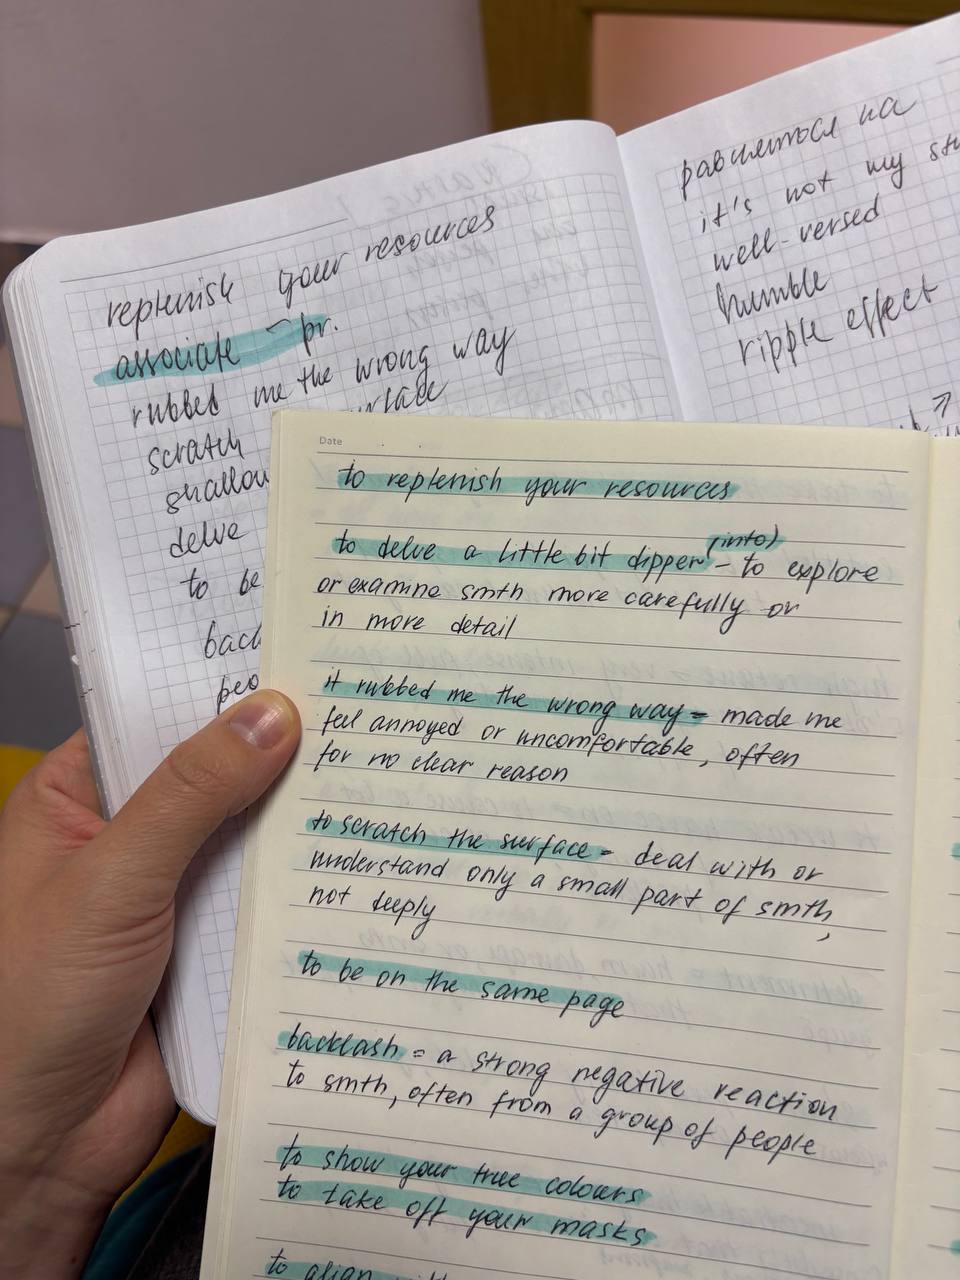 replenish your resources
associate pr.
rubbed me the wrong way
scratch
shallow
delve
to be
back
peo
равняться на
it's not my
well-versed
humble
ripple effect
Date
to replenish your resources
to delve a little bit dipper (into) - to explore
or examine smth more carefully or
in more detail
it rubbed me the wrong way = made me
feel annoyed or uncomfortable, often
for no clear reason
to scratch the surface = deal with or
understand only a small part of smth,
not deeply
to be on the same page
backlash = a strong negative reaction
to smth, often from a group of people
to show your true colours
to take off your masks
to align